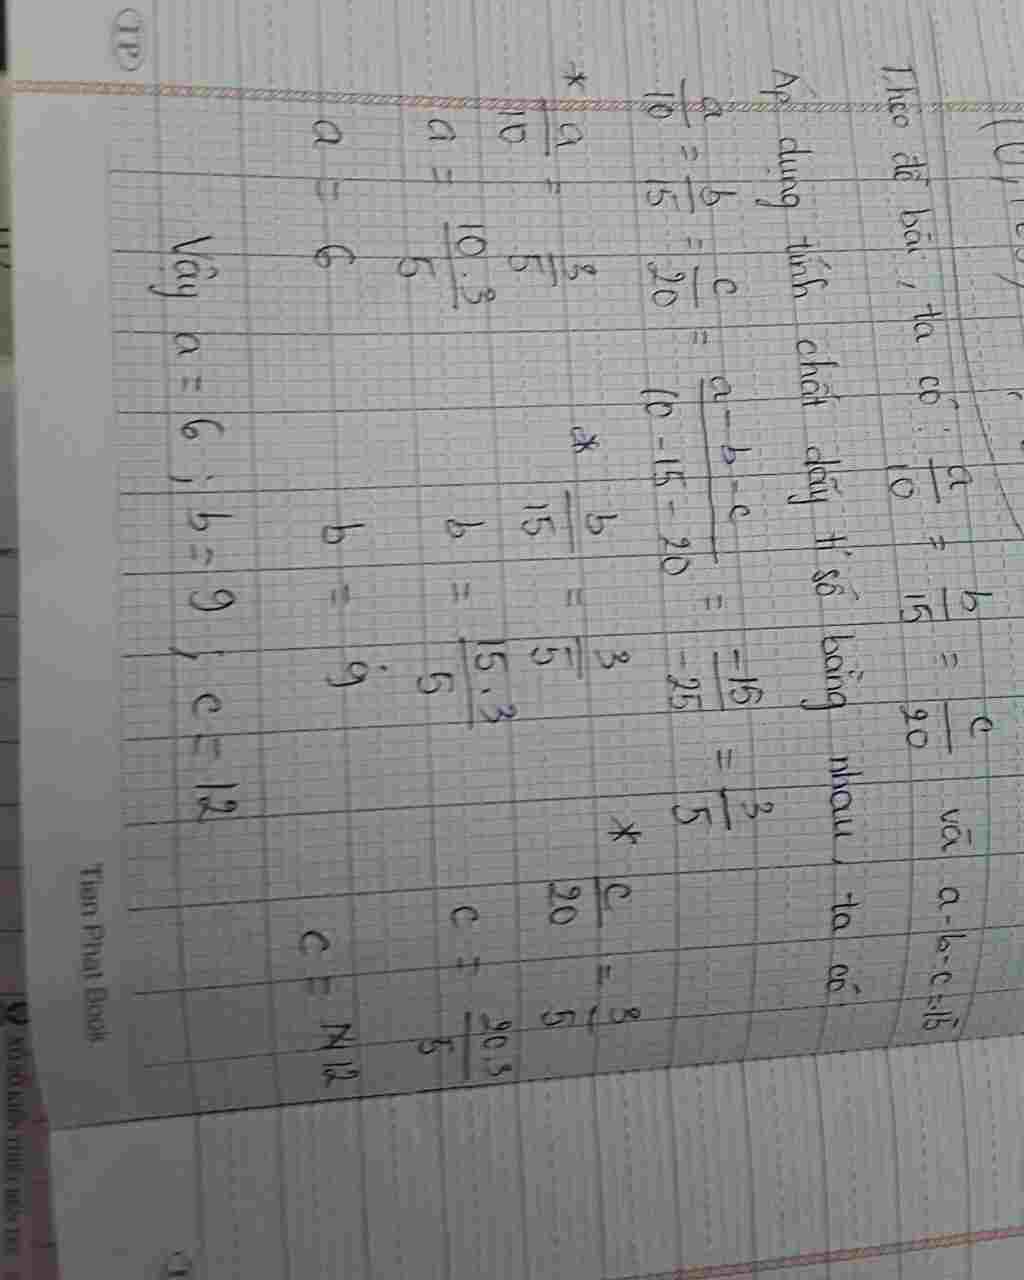 Theo đề bài, ta có: a/10 = b/15 = c/20 và a-b-c=15
Áp dụng tính chất dãy tỉ số bằng nhau, ta có
a/10 = b/15 = c/20 = a-b-c/10-15-20 = -15/-25 = 3/5
* a/10 = 3/5 * b/15 = 3/5 * c/20 = 3/5
a = 10.3/5 b = 15.3/5 c = 20.3/5
a = 6 b = 9 c = 12
Vậy a = 6 ; b = 9 ; c = 12
TP
Tien Phat Book